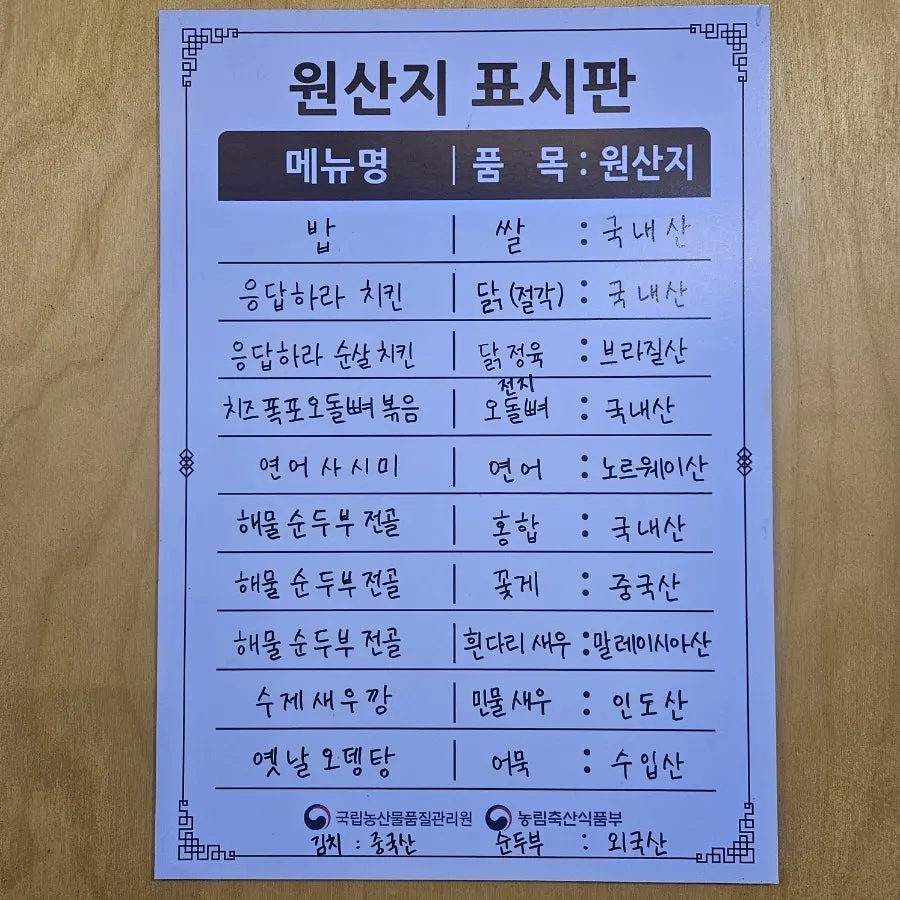 원산지 표시판
메뉴명 | 품 목 : 원산지
밥 | 쌀 : 국내산
응답하라 치킨 | 닭(절각) : 국내산
응답하라 순살치킨 | 닭정육 : 브라질산
전지
치즈폭포오돌뼈볶음 | 오돌뼈 : 국내산
연어사시미 | 연어 : 노르웨이산
해물순두부전골 | 홍합 : 국내산
해물순두부전골 | 꽃게 : 중국산
해물순두부전골 | 흰다리새우 : 말레이시아산
수제새우깡 | 민물새우 : 인도산
옛날오뎅탕 | 어묵 : 수입산
국립농산물품질관리원 농림축산식품부
김치 : 중국산 순두부 : 외국산